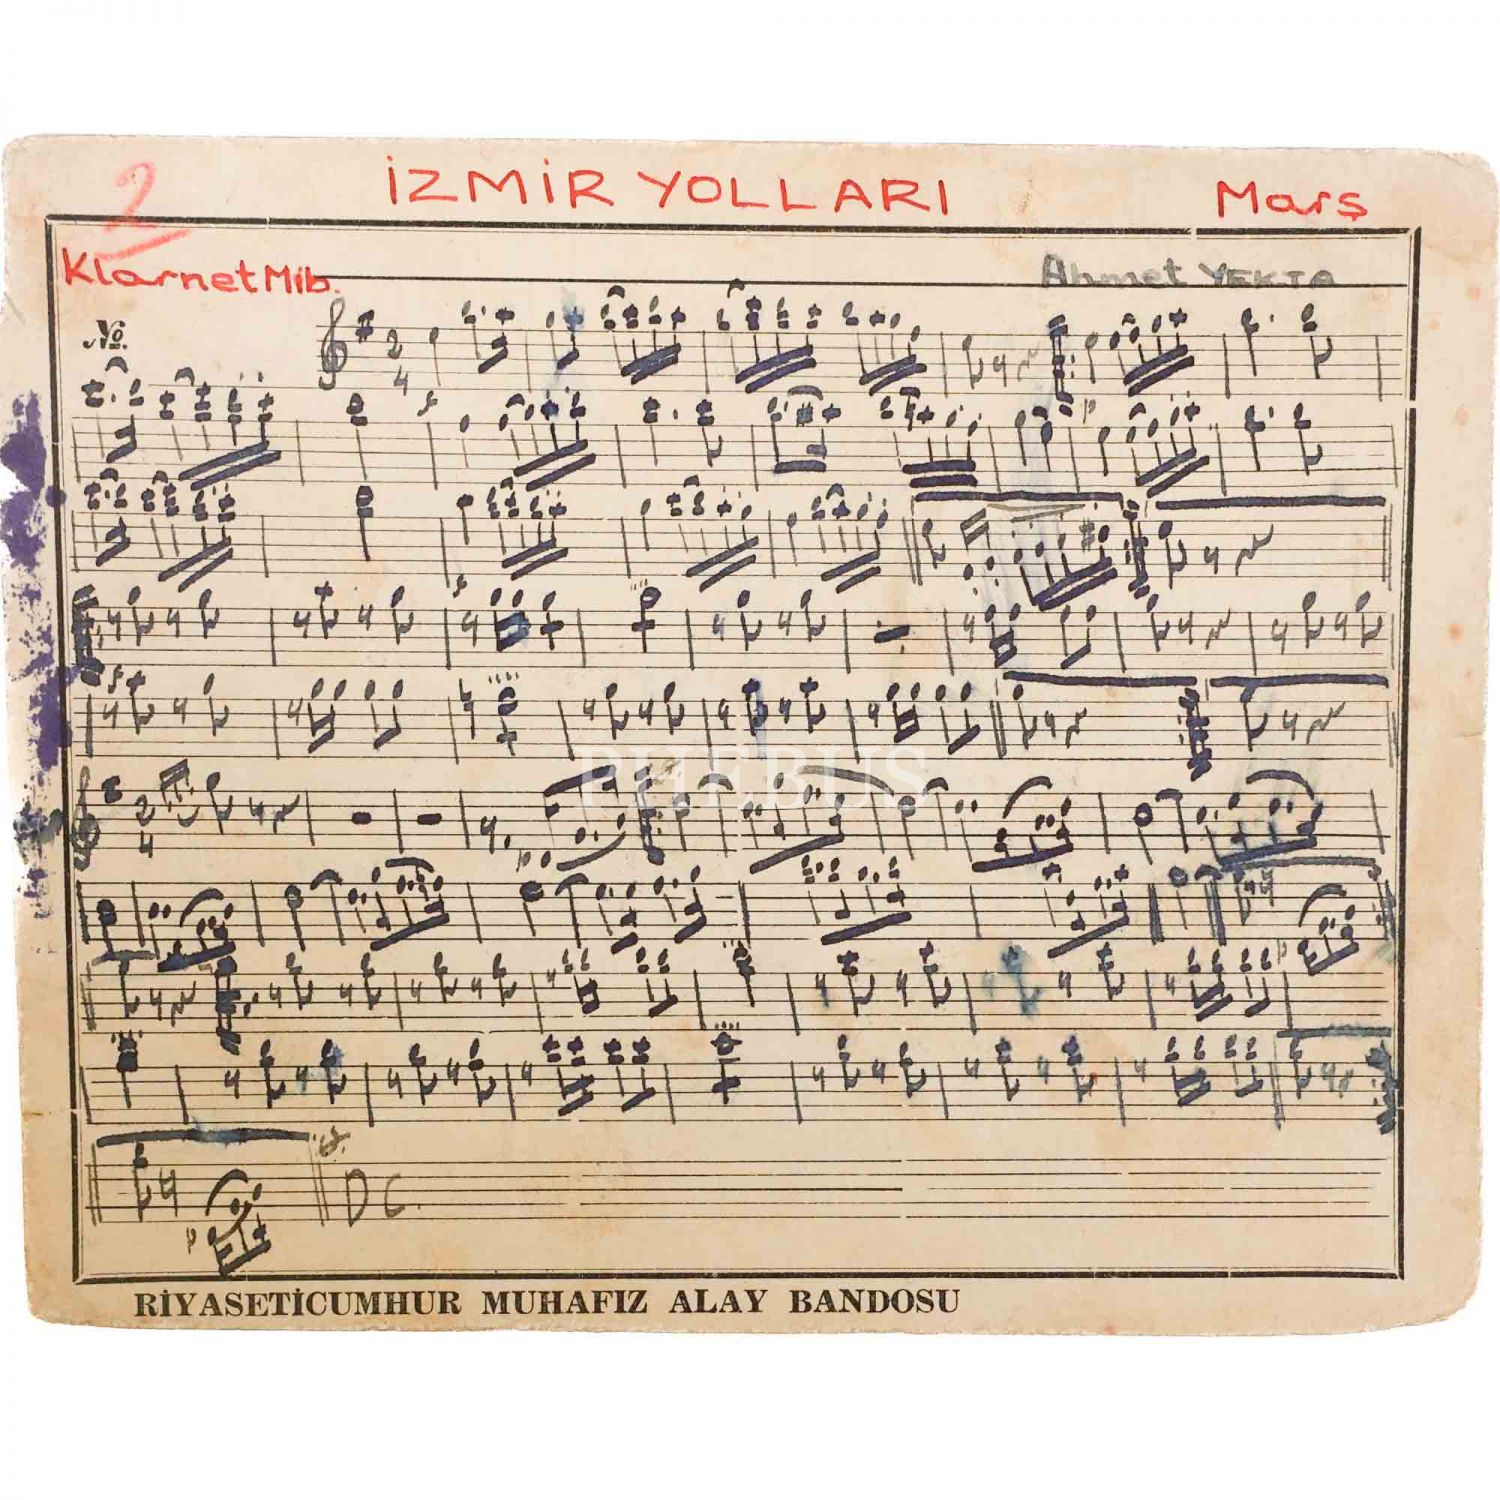 2
İZMİR YOLLARI Marş
Klarnet Mib. Ahmet YEKTA
No.
2
4
f
p
f
f
p
2
4
p
p
PHEBUS
p
D C
RİYASETİCUMHUR MUHAFIZ ALAY BANDOSU